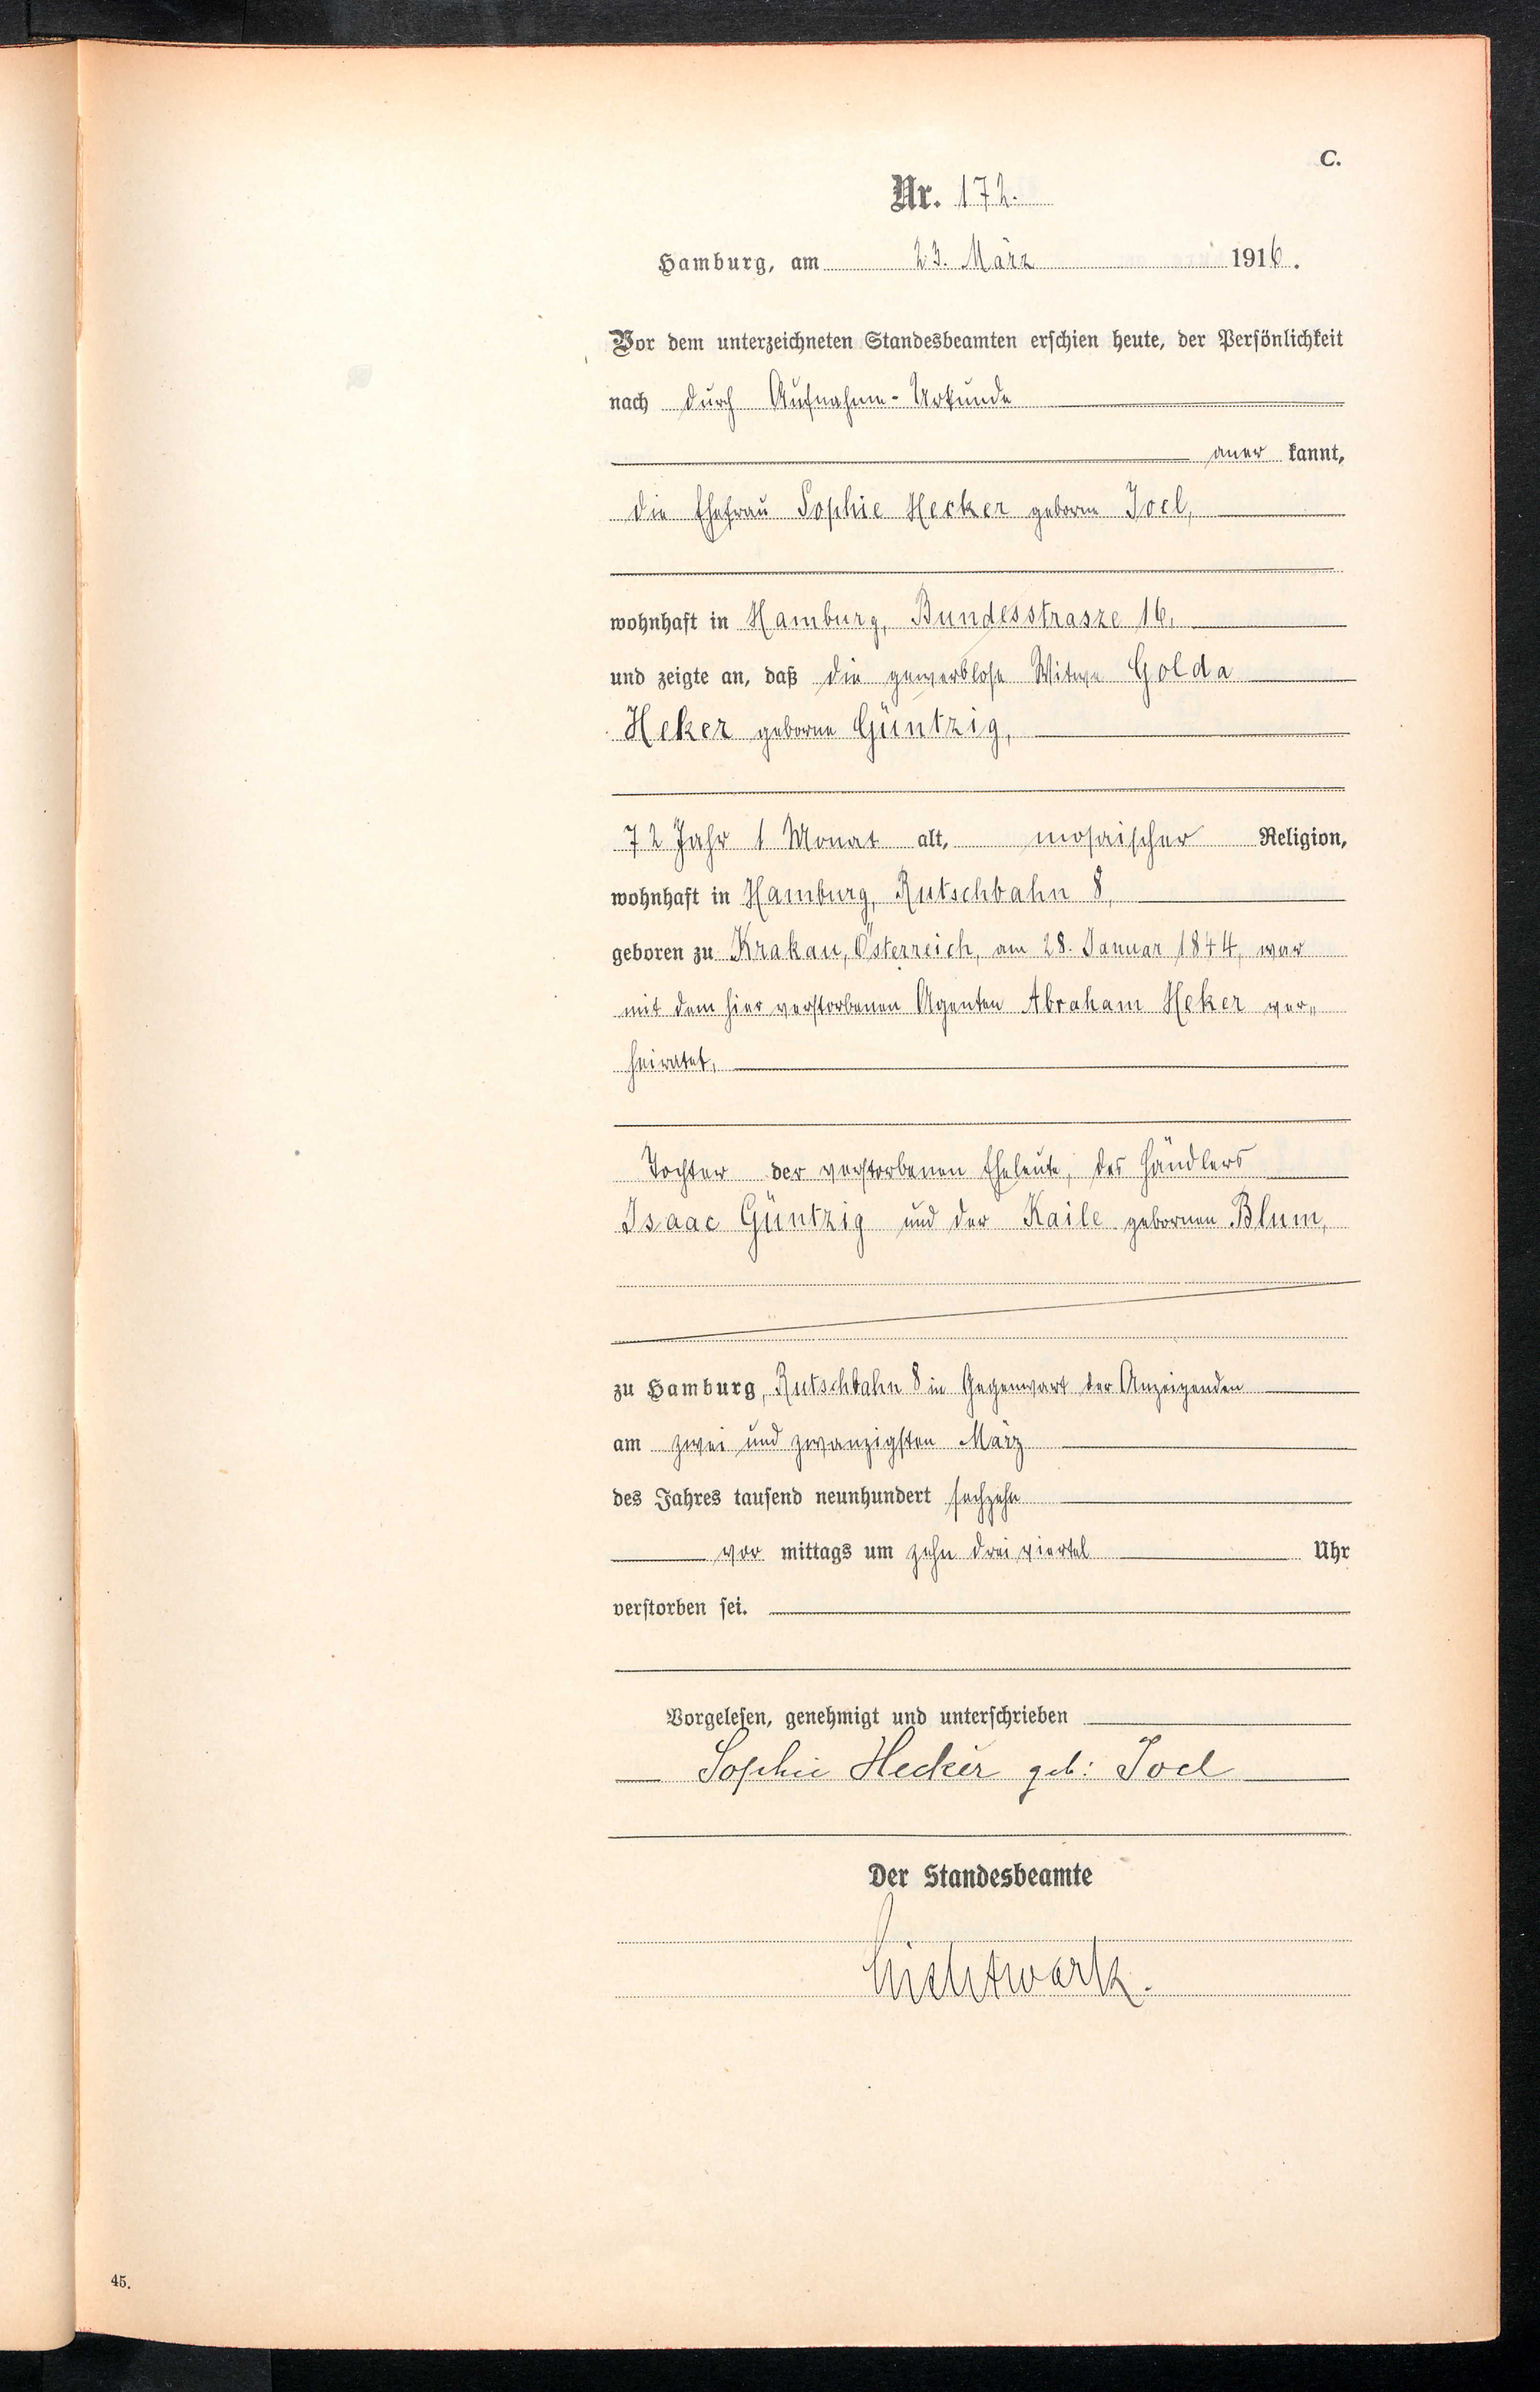 C.
Nr. 172.
Hamburg, am 23. März 1916.
Vor dem unterzeichneten Standesbeamten erschien heute, der Persönlichkeit
nach durch Aufnahme-Urkunde
aner kannt,
die Ehefrau Sophie Hecker geborne Joel,
wohnhaft in Hamburg, Bundesstrasze 16,
und zeigte an, daß die gewerblose Witwe Golda
Heker geborne Güntzig,
72 Jahr 1 Monat alt, mosaischer Religion,
wohnhaft in Hamburg, Rutschbahn 8,
geboren zu Krakau, Österreich, am 28. Januar 1844, war
mit dem hier verstorbenen Agenten Abraham Heker ver„
heiratet,
Tochter der verstorbenen Eheleute, des Händlers
Isaac Güntzig und der Kaile gebornen Blum,
zu Hamburg, Rutschbahn 8 in Gegenwart der Anzeigenden
am zwei und zwanzigsten März
des Jahres tausend neunhundert sechzehn
vor mittags um zehn drei viertel Uhr
verstorben sei.
Vorgelesen, genehmigt und unterschrieben
Sophie Hecker geb: Joel
Der Standesbeamte
Lichtwark.
45.